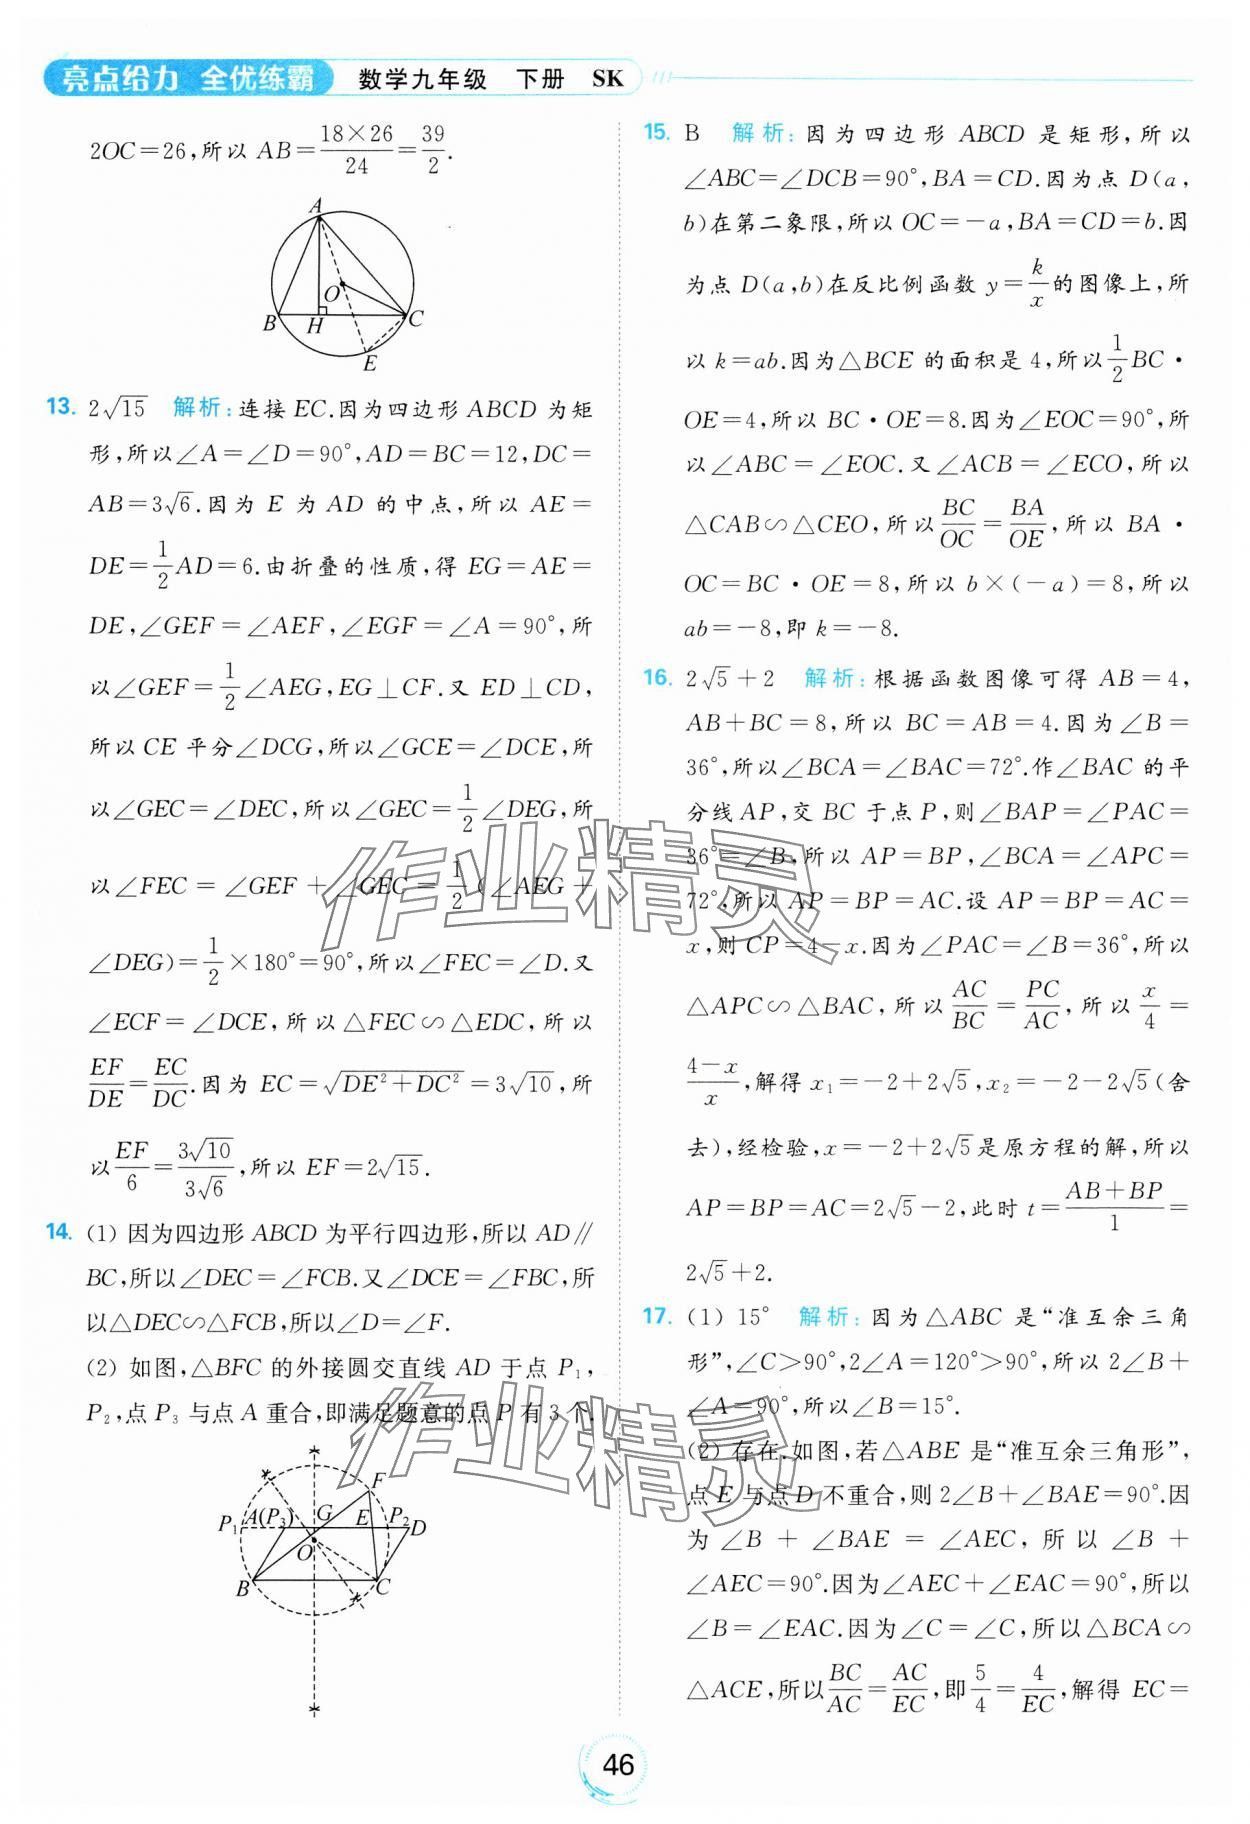 亮点给力 全优练霸 数学九年级 下册 SK
2OC=26,所以 AB=18×26/24=39/2.
A
O
B H C
E
13. 2√15 解析:连接 EC.因为四边形 ABCD 为矩
形,所以∠A=∠D=90°,AD=BC=12,DC=
AB=3√6.因为 E 为 AD 的中点,所以 AE=
DE=1/2AD=6.由折叠的性质,得 EG=AE=
DE,∠GEF=∠AEF,∠EGF=∠A=90°,所
以∠GEF=1/2∠AEG,EG⊥CF.又 ED⊥CD,
所以 CE 平分∠DCG,所以∠GCE=∠DCE,所
以∠GEC=∠DEC,所以∠GEC=1/2∠DEG,所
以∠FEC=∠GEF+∠GEC=1/2(∠AEG+
∠DEG)=1/2×180°=90°,所以∠FEC=∠D.又
∠ECF=∠DCE,所以△FEC∽△EDC,所以
EF/DE=EC/DC.因为 EC=√(DE²+DC²)=3√10,所
以EF/6=3√10/3√6,所以 EF=2√15.
14. (1) 因为四边形 ABCD 为平行四边形,所以 AD∥
BC,所以∠DEC=∠FCB.又∠DCE=∠FBC,所
以△DEC∽△FCB,所以∠D=∠F.
(2) 如图,△BFC 的外接圆交直线 AD 于点 P₁,
P₂,点 P₃ 与点 A 重合,即满足题意的点 P 有 3 个.
F
P₁ A(P₃) G E P₂ D
O
B C
15. B 解析:因为四边形 ABCD 是矩形,所以
∠ABC=∠DCB=90°,BA=CD.因为点 D(a,
b)在第二象限,所以 OC=-a,BA=CD=b.因
为点 D(a,b)在反比例函数 y=k/x的图像上,所
以 k=ab.因为△BCE 的面积是 4,所以1/2BC·
OE=4,所以 BC·OE=8.因为∠EOC=90°,所
以∠ABC=∠EOC.又∠ACB=∠ECO,所以
△CAB∽△CEO,所以BC/OC=BA/OE,所以 BA·
OC=BC·OE=8,所以 b×(-a)=8,所以
ab=-8,即 k=-8.
16. 2√5+2 解析:根据函数图像可得 AB=4,
AB+BC=8,所以 BC=AB=4.因为∠B=
36°,所以∠BCA=∠BAC=72°.作∠BAC 的平
分线 AP,交 BC 于点 P,则∠BAP=∠PAC=
36°=∠B,所以 AP=BP,∠BCA=∠APC=
72°,所以 AP=BP=AC.设 AP=BP=AC=
x,则 CP=4-x.因为∠PAC=∠B=36°,所以
△APC∽△BAC,所以AC/BC=PC/AC,所以x/4=
4-x/x,解得 x₁=-2+2√5,x₂=-2-2√5(舍
去),经检验,x=-2+2√5是原方程的解,所以
AP=BP=AC=2√5-2,此时 t=AB+BP/1=
2√5+2.
17. (1) 15° 解析:因为△ABC 是“准互余三角
形”,∠C>90°,2∠A=120°>90°,所以 2∠B+
∠A=90°,所以∠B=15°.
(2) 存在.如图,若△ABE 是“准互余三角形”,
点 E 与点 D 不重合,则 2∠B+∠BAE=90°.因
为∠B+∠BAE=∠AEC,所以∠B+
∠AEC=90°.因为∠AEC+∠EAC=90°,所以
∠B=∠EAC.因为∠C=∠C,所以△BCA∽
△ACE,所以BC/AC=AC/EC,即5/4=4/EC,解得 EC=
46
作业精灵
作业精灵